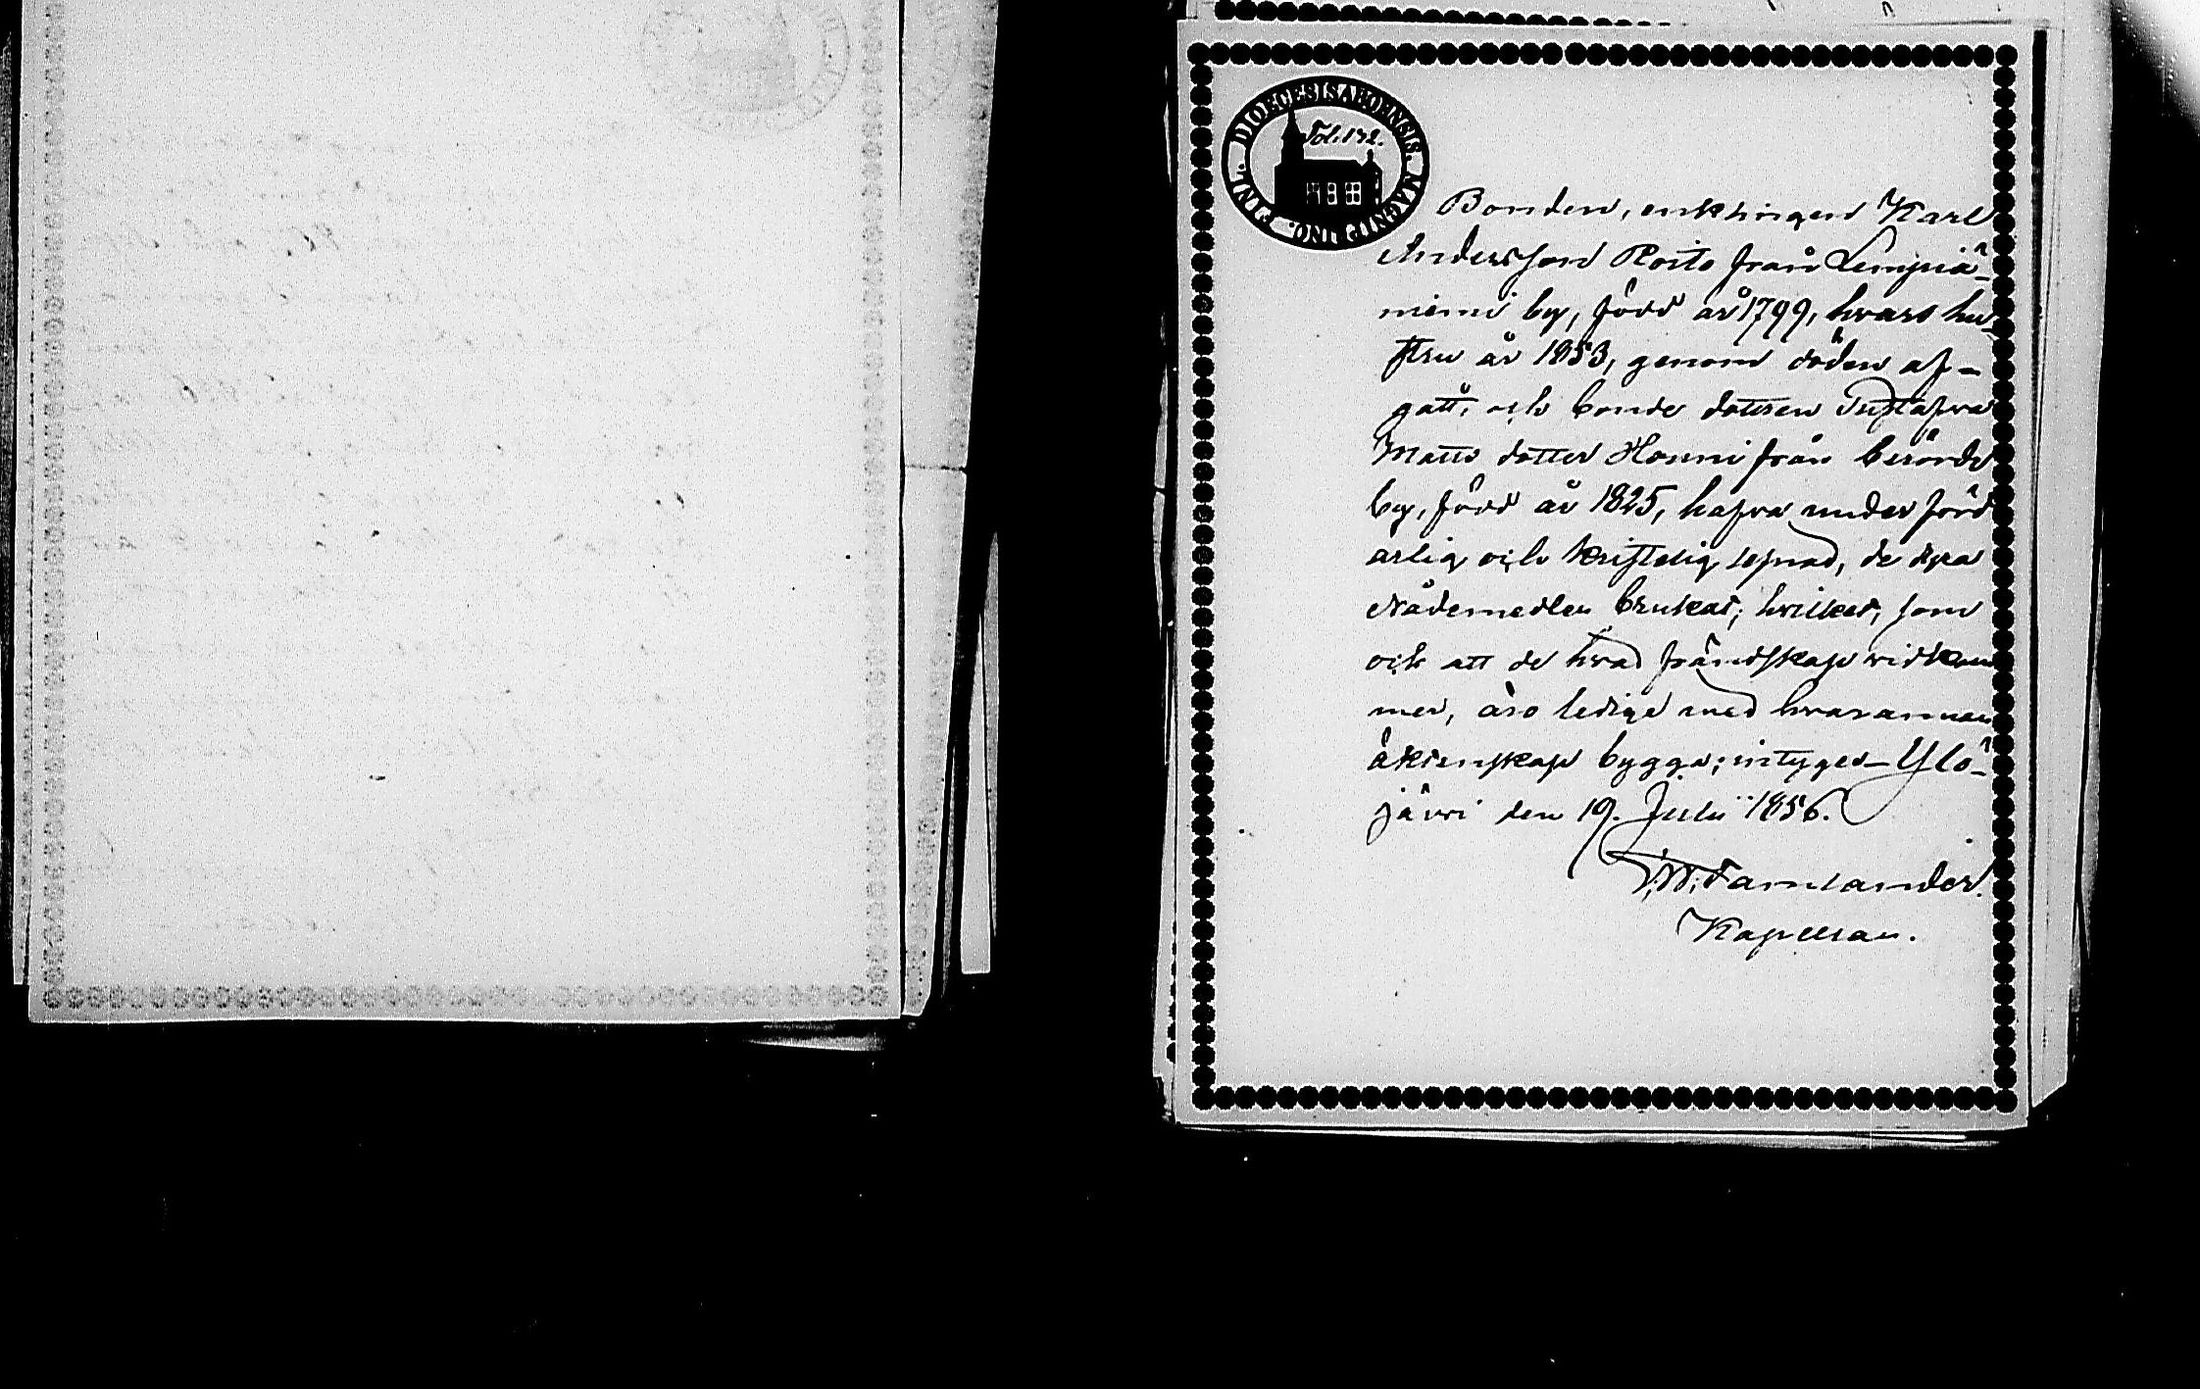 DIOECESIS ABOENSIS. MAGNI DUC. FINL.
Fol. 132.
Bonden, enklingen Karl
Andersson Roito från Lempiä-
niemi by, född år 1799, hvars hu-
stru år 1853, genom döden af-
gått, och bonde dottren Gustafva
Matts dotter Honni från berörde
by, född år 1825, hafva under förd
ärlig och kristelig lefnad, de dyra
Nådemedlen brukat; hvilket, som
ock att de hvad frändskap vidkom
mer, äro ledige med hvarannan
äktenskap bygga; intyges – Ylö-
järvi den 19. Julii 1856.
Tamlander.
Kapellan.